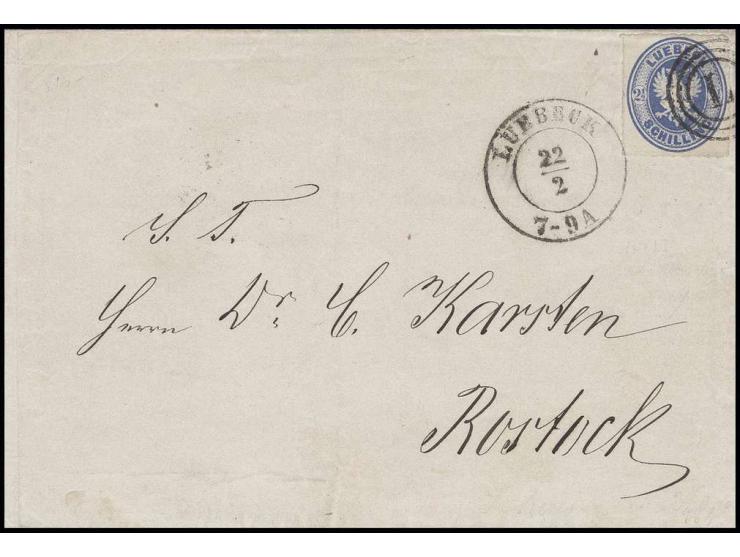 LUEBECK
2
SCHILLING
LUEBECK
22
2
7-9A
S. T.
Herrn Dr. C. Karsten
Rostock